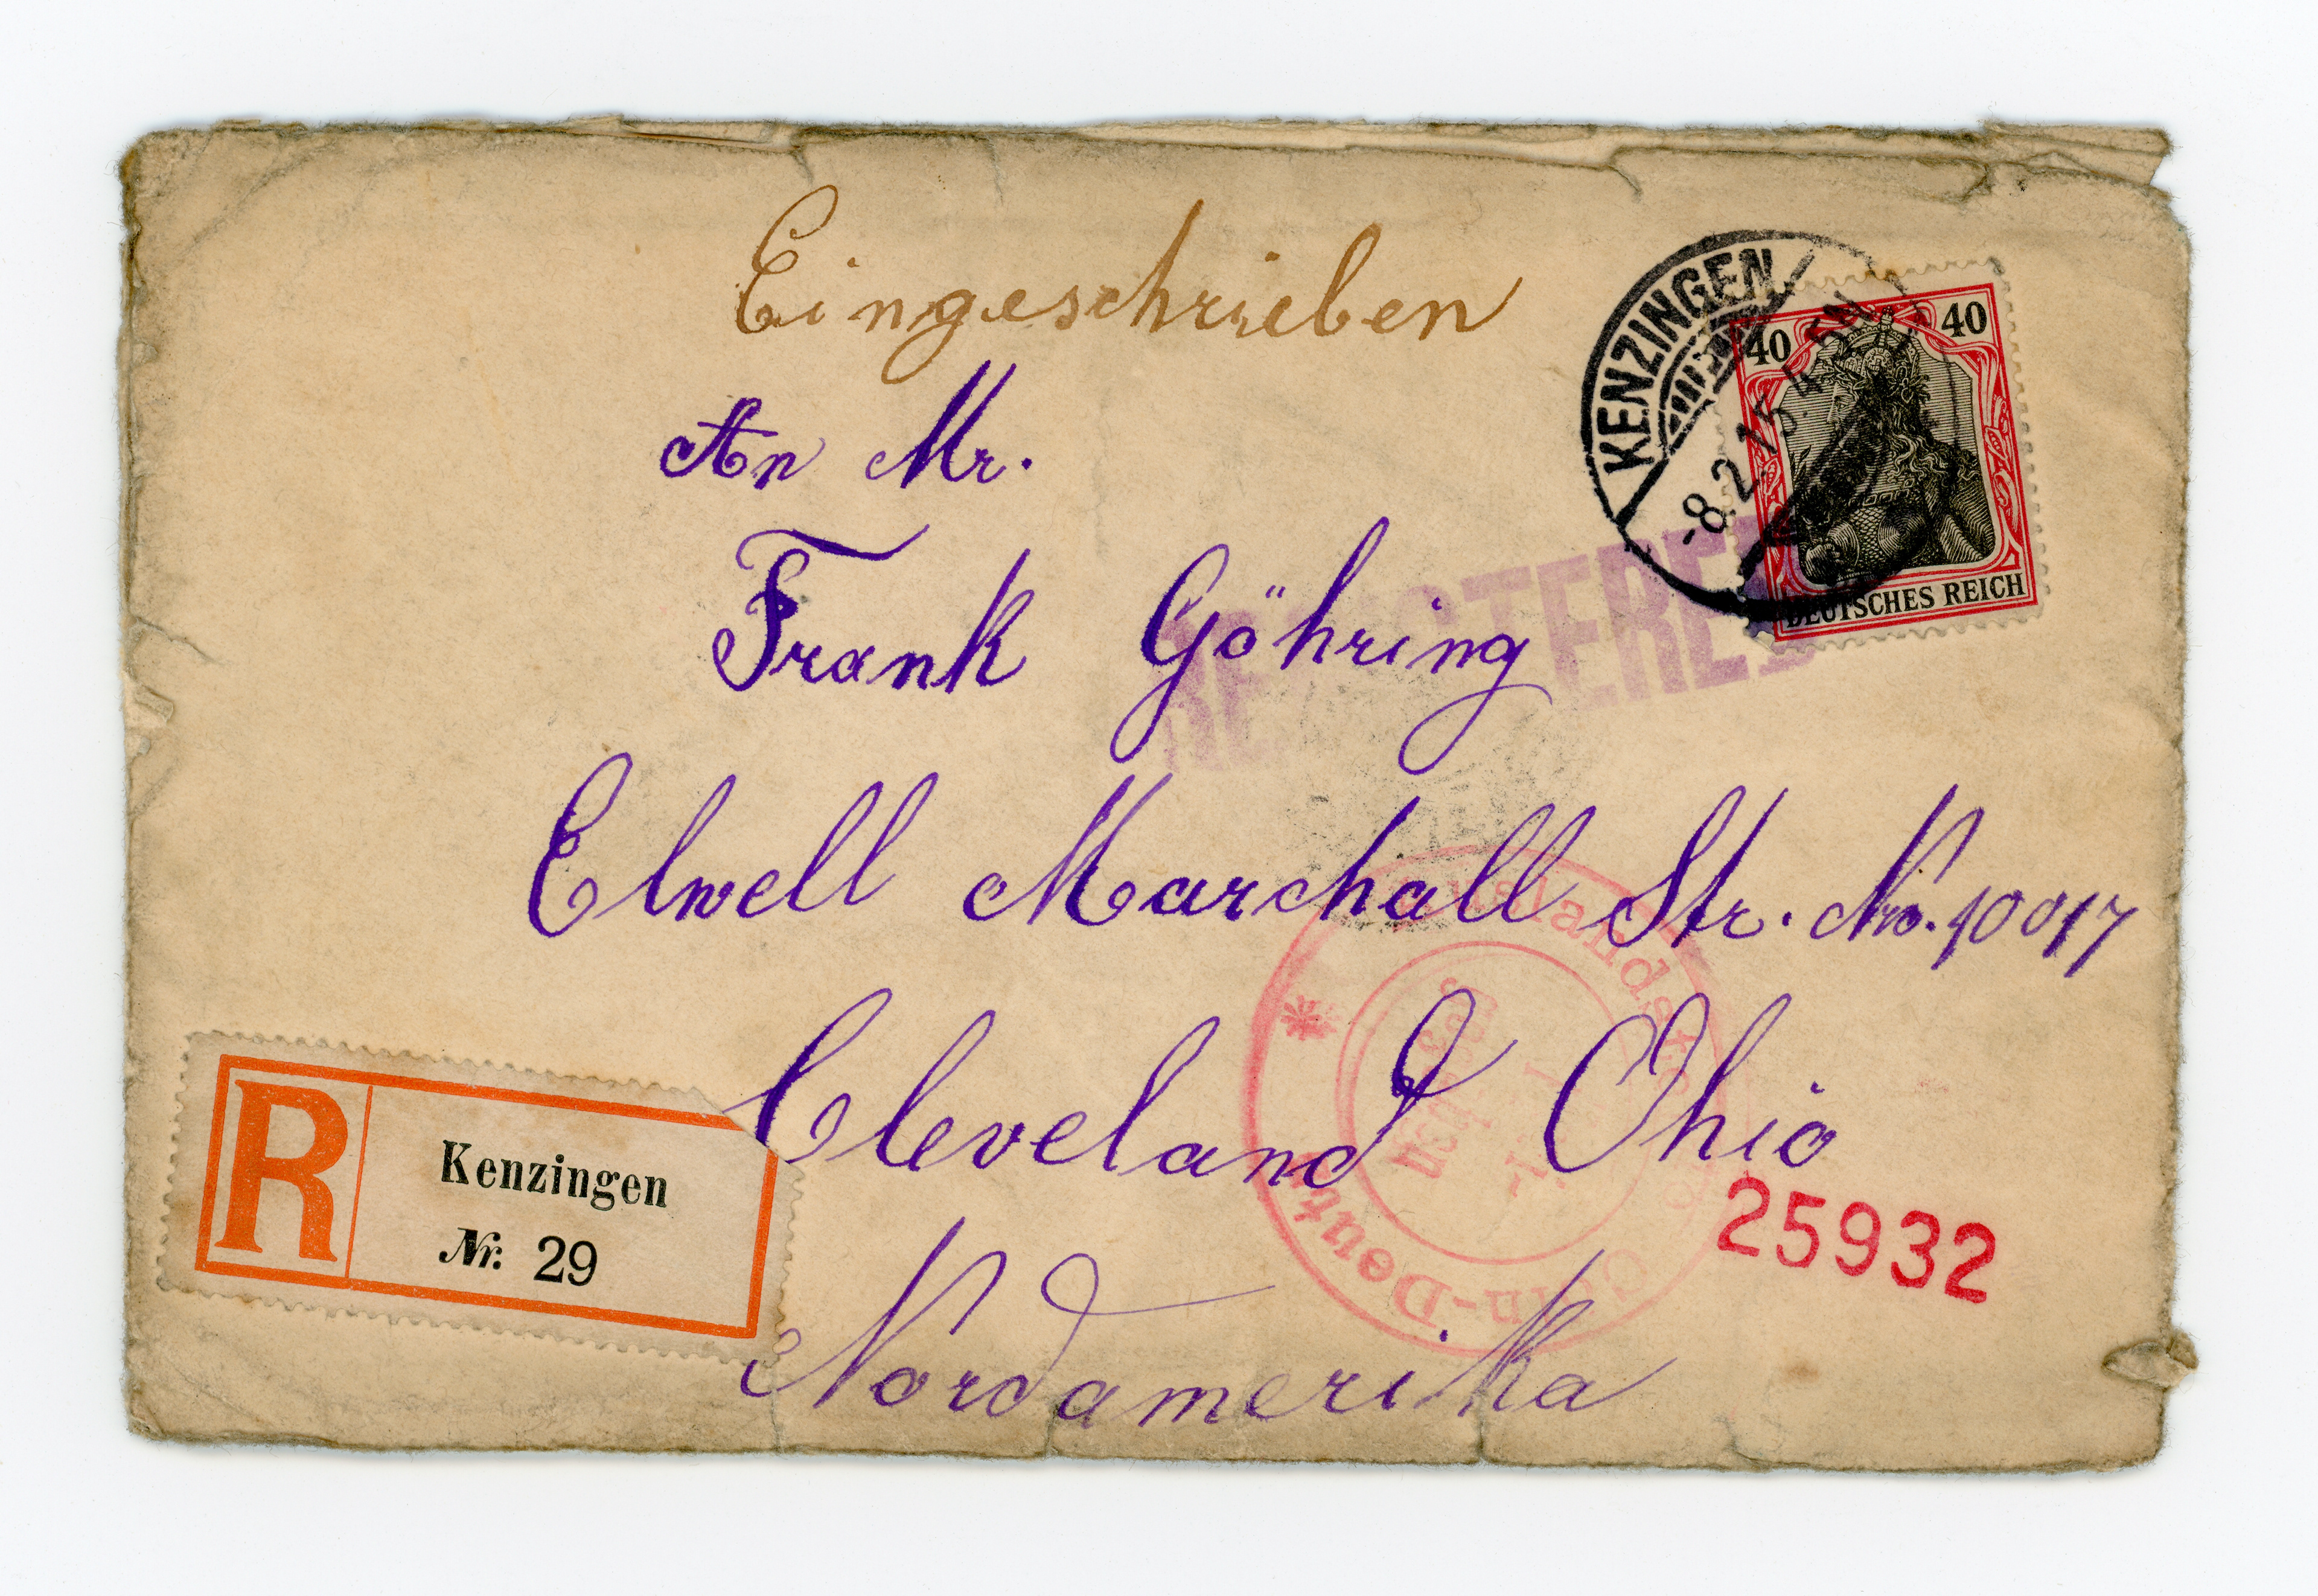 Eingeschrieben
KENZINGEN
-8.2.15.4-5N
40 40
DEUTSCHES REICH
An Mr.
Frank Göhring
REGISTERED
Elwell Marchall Str. No. 10017
Cleveland Ohio
Auslands
Cöln-Deutz
25932
Nordamerika
R
Kenzingen
Nr. 29